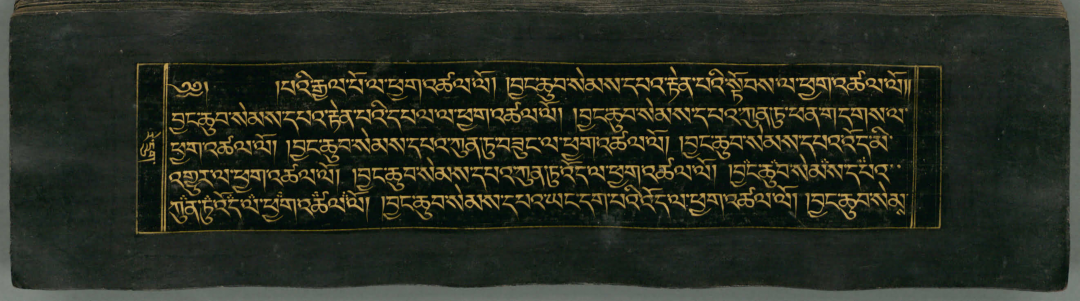 ༄༅། །པའི་རྒྱལ་པོ་ལ་ཕྱག་འཚལ་ལོ། །བྱང་ཆུབ་སེམས་དཔའ་རྟེན་པའི་སྟོབས་ལ་ཕྱག་འཚལ་ལོ༎
བྱང་ཆུབ་སེམས་དཔའ་རྟེན་པའི་དཔལ་ལ་ཕྱག་འཚལ་ལོ། །བྱང་ཆུབ་སེམས་དཔའ་ཀུན་ཏུ་ཕན་གདགས་ལ་
ཕྱག་འཚལ་ལོ། །བྱང་ཆུབ་སེམས་དཔའ་ཀུན་ཏུ་བཟུང་ལ་ཕྱག་འཚལ་ལོ། །བྱང་ཆུབ་སེམས་དཔའ་འོད་མི་
འགྱུར་ལ་ཕྱག་འཚལ་ལོ། །བྱང་ཆུབ་སེམས་དཔའ་ཀུན་ཏུ་འོད་ལ་ཕྱག་འཚལ་ལོ། །བྱང་ཆུབ་སེམས་དཔའ་་
ཀུན་ཏུ་འོད་ལ་ཕྱག་འཚལ་ལོ། །བྱང་ཆུབ་སེམས་དཔའ་ཡང་དག་པའི་འོད་ལ་ཕྱག་འཚལ་ལོ། །བྱང་ཆུབ་སེམ